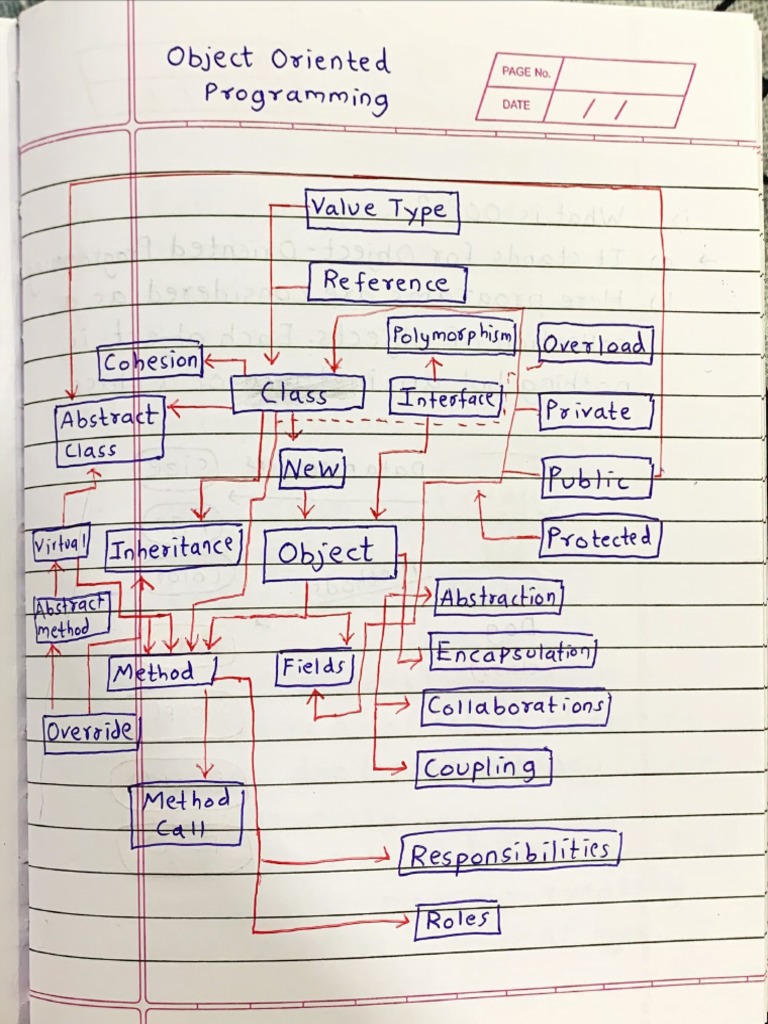 Object Oriented
Programming
PAGE No.
DATE / /
Value Type
Reference
Polymorphism
Overload
Cohesion
Class
Interface
Private
Abstract
Class
New
Public
Virtual
Inheritance
Object
Protected
Abstract
method
Abstraction
Encapsulation
Method
Fields
Collaborations
Override
Coupling
Method
Call
Responsibilities
Roles